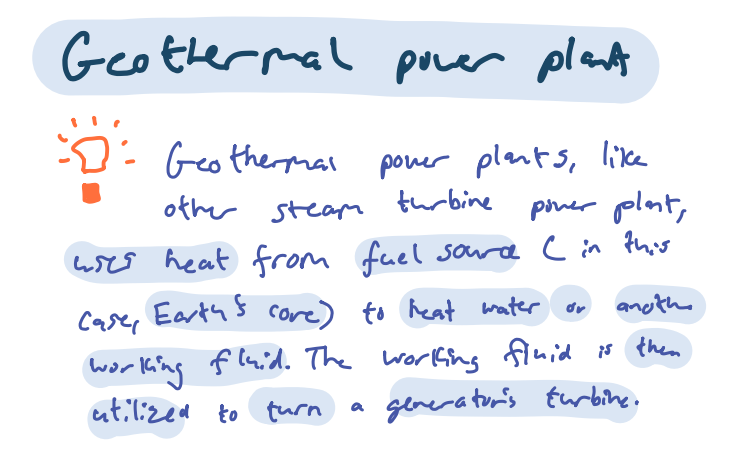 Geothermal power plant
Geothermal power plants, like
other steam turbine power plant,
uses heat from fuel source ( in this
case, Earth's core) to heat water or another
working fluid. The working fluid is then
utilized to turn a generator's turbine.